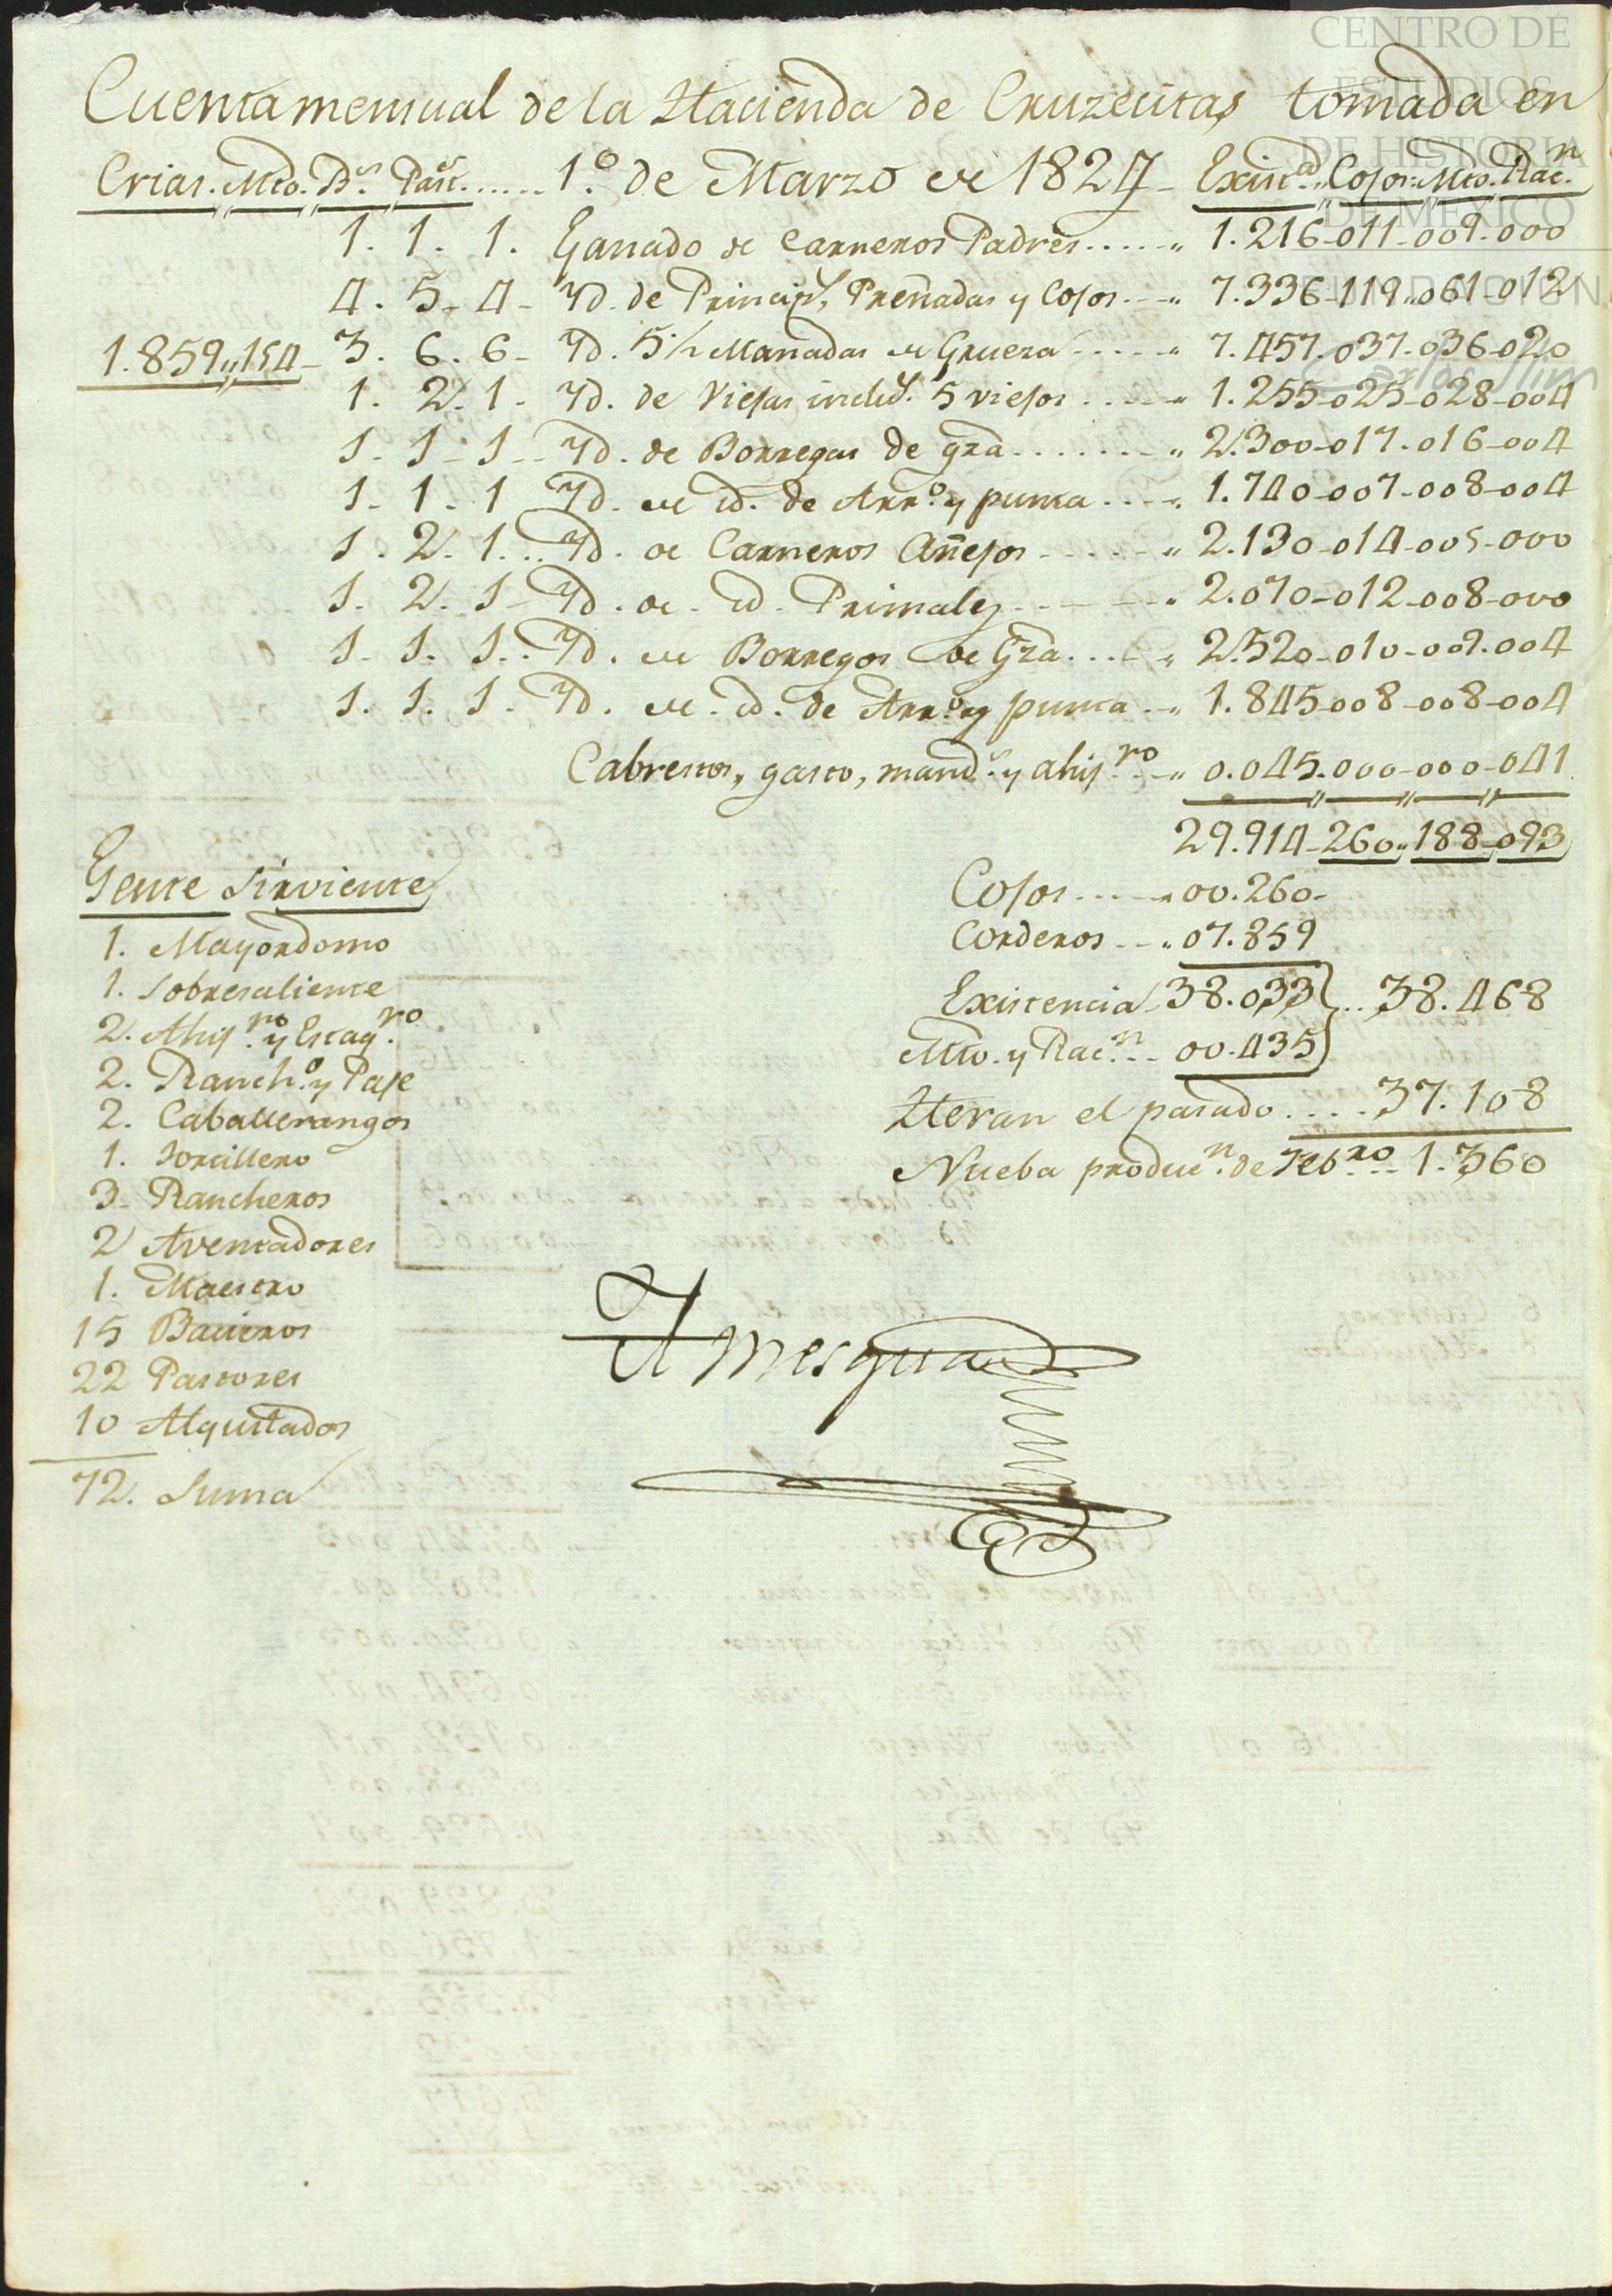 CENTRO DE
ESTUDIOS
DE HISTORIA
DE MEXICO
FUNDACIÓN
Carlos Slim
Cuenta mensual de la Hacienda de Cruzecitas tomada en
Crias. Mto. B.s Past. ...... 1.º de Marzo de 1827 - Exist.cd Cojos. Mto. Rac.n
1. 1. 1. Ganado de Carneros Padres ..... " 1.216-011-009-000
4. 5. 4. Yd. de Princip.s Preñadas y Cojos .... " 7.336-119-061-012
1.859,,154 - 3. 6. 6. Yd. 5½ Manadas de Grueza ..... " 7.457-037-036-020
1. 2. 1. Yd. de Viejas includ.s 5 viejos ..... " 1.255-025-028-004
1. 1. 1. Yd. de Borregas de gza ....... " 2.300-017-016-004
1. 1. 1 Yd. de id. de Arr.º y punta .... " 1.740-007-008-004
1. 2. 1. Yd. de Carneros Añejos ..... " 2.130-014-005-000
1. 2. 1 Yd. de id. Primales ..... " 2.070-012-008-000
1. 1. 1. Yd. de Borregos de Gza .... " 2.520-010-009-004
1. 1. 1. Yd. de id. de Arr.º y punta .. " 1.845-008-008-004
Cabrestos, gasto, mand.s y ahij.ro " 0.045-000-000-041
29.914-260,,188-093
Gente sirviente
Cojos ..... " 00.260-
Corderos ... " 07.859
1. Mayordomo
1. Sobresaliente
Existencia 38.033 } .. 38.468
2. Ahij.ro y Escag.ro
Mto. y Rac.n .. 00.435
2. Ranch.º y Paje
Heran el pasado .... 37.108
2. Caballerangos
1. Sorcillero
Nueba produc.n de Feb.ro .. 1.360
3. Rancheros
2 Aventadores
1. Maestro
15 Bacieros
22 Pastores
10 Alquilados
72. Suma
Amesgua